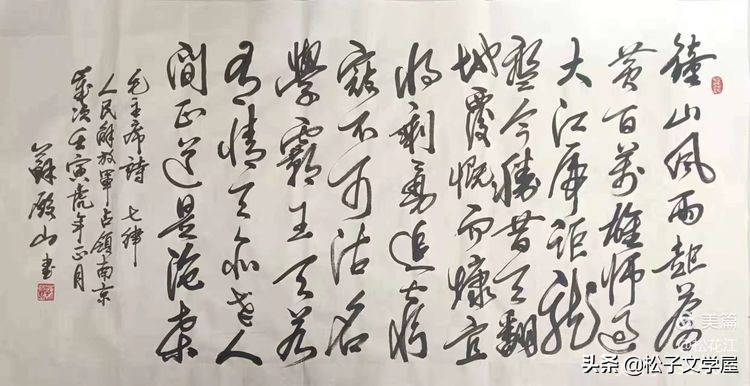 鍾山风雨起蒼
黄百萬雄师过
大江虎距龙
盤今勝昔天翻
地覆慨而慷宜
将剩勇追穷
寇不可沽名
學霸王天若
有情天亦老人
間正道是滄桑
毛主席詩 七律
人民解放軍占領南京
歲次壬寅虎年正月
蘇殿山书
美篇
松花江
头条 @松子文学屋